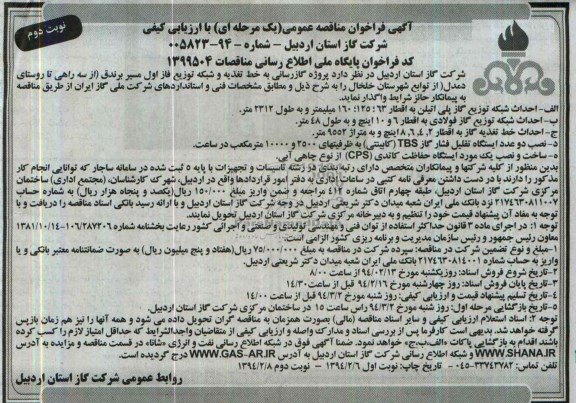 نوبت دوم
آگهی فراخوان مناقصه عمومی(یک مرحله ای) با ارزیابی کیفی
شرکت گاز استان اردبیل - شماره - ۹۴-۰۰۵۸۲۳
کد فراخوان پایگاه ملی اطلاع رسانی مناقصات ۱۳۹۹۵۰۴
شرکت گاز استان اردبیل در نظر دارد پروژه گازرسانی به خط تغذیه و شبکه توزیع فاز اول مسیر برندق (از سه راهی تا روستای
دمدل) از توابع شهرستان خلخال را به شرح ذیل و مطابق مشخصات فنی و استانداردهای شرکت ملی گاز ایران از طریق مناقصه
به پیمانکار حائز شرایط واگذار نماید.
الف- احداث شبکه توزیع گاز پلی اتیلن به اقطار ۶۳؛ ۱۲۵؛ ۱۶۰ میلیمتر و به طول ۲۳۱۲ متر.
ب- احداث شبکه توزیع گاز فولادی به اقطار ۶ و ۱۰ اینچ و به طول ۴۸ متر.
ج- احداث خط تغذیه گاز به اقطار ۲، ۴، ۶، ۸ اینچ و به متراژ ۹۵۵۲ متر.
د- نصب دو عدد ایستگاه تقلیل فشار گاز TBS (کابینتی) به ظرفیتهای ۲۵۰۰ و ۱۰۰۰۰ مترمکعب در ساعت.
ه- ساخت و نصب یک مورد ایستگاه حفاظت کاتدی (CPS) از نوع چاهی آبی.
بدین منظور از کلیه شرکتها و پیمانکاران متخصص دارای رتبه بندی در رشته تاسیسات و تجهیزات با پایه ۵ ثبت شده در سامانه ساجار که توانایی انجام کار
مذکور را دارند با در دست داشتن معرفی نامه کتبی در ساعات اداری به دفتر امور قراردادهای واقع در اردبیل، شهرک کارشناسان، (مجتمع اداری) ساختمان
مرکزی شرکت گاز استان اردبیل، طبقه چهارم اتاق شماره ۴۱۲ مراجعه و ضمن واریز مبلغ ۱۵۰/۰۰۰ ریال(یکصد و پنجاه هزار ریال) به شماره حساب
۲۱۷۴۶۳۰۸۱۱۰۰۷ نزد بانک ملی ایران شعبه میدان دکتر شریعتی اردبیل در وجه شرکت گاز استان اردبیل و با ارائه رسید بانکی اسناد مناقصه را دریافت و با
توجه به مفاد آن پیشنهاد قیمت خود را تنظیم و به دبیرخانه مرکزی شرکت گاز استان اردبیل تحویل نمایند.
توجه ۱: در اجرای ماده ۳ قانون حداکثر استفاده از توان فنی و مهندسی تولیدی و صنعتی و اجرائی کشور رعایت بخشنامه شماره ۱۰۶/۲۸۷۲۰۶-۱۳۸۱/۱۰/۱۴
معاون رئیس جمهور و رئیس سازمان مدیریت و برنامه ریزی کشور الزامی است.
۱-مبلغ و نوع تضمین شرکت در مناقصه: سپرده شرکت در مناقصه به مبلغ ۷۵/۰۰۰/۰۰۰ ریال(هفتاد و پنج میلیون ریال) به صورت ضمانتنامه معتبر بانکی و یا
واریز به حساب شماره ۲۱۷۴۶۳۰۸۱۴۰۰۱ بانک ملی ایران شعبه میدان دکتر شریعتی اردبیل.
۲-تاریخ شروع فروش اسناد: روز یکشنبه مورخ ۹۴/۰۲/۱۳ از ساعت ۸/۰۰
۳-تاریخ پایان فروش اسناد: روز چهارشنبه مورخ ۹۴/۲/۱۶ قبل از ساعت ۱۴/۳۰
۴-تاریخ تسلیم پیشنهاد قیمت و ارزیابی کیفی: روز شنبه مورخ ۹۴/۳/۲ قبل از ساعت ۱۴/۰۰
۵-تاریخ بازگشایی مرحله اول: روز شنبه مورخ ۹۴/۳/۲ راس ساعت ۱۵ در ساختمان مرکزی شرکت گاز استان اردبیل.
توجه ۲: اسناد استعلام ارزیابی کیفی و سایر اسناد مناقصه (مالی) بصورت همزمان به مناقصه گران تحویل داده می شود و همه آنها را نیز هم زمان بازپس
گرفته خواهد شد. بدیهی است کارفرما پس از بررسی اسناد و مدارک واصله و ارزیابی کیفی از متقاضیان واجدالشرایط که حداقل امتیاز لازم را کسب کرده
باشند اقدام به بازگشایی پاکات «الف،ب،ج» خواهد نمود. ضمنا آگهی فوق در شبکه اطلاع رسانی نفت و انرژی «شانا» در قسمت مناقصه و مزایده به آدرس
WWW.SHANA.IR و شبکه اطلاع رسانی شرکت گاز استان اردبیل به آدرس WWW.GAS-AR.IR درج گردیده است.
تلفن تماس: ۳۳۷۴۳۷۸۲-۰۴۵ تاریخ چاپ: نوبت اول ۱۳۹۴/۲/۶ - نوبت دوم ۱۳۹۴/۲/۸
روابط عمومی شرکت گاز استان اردبیل